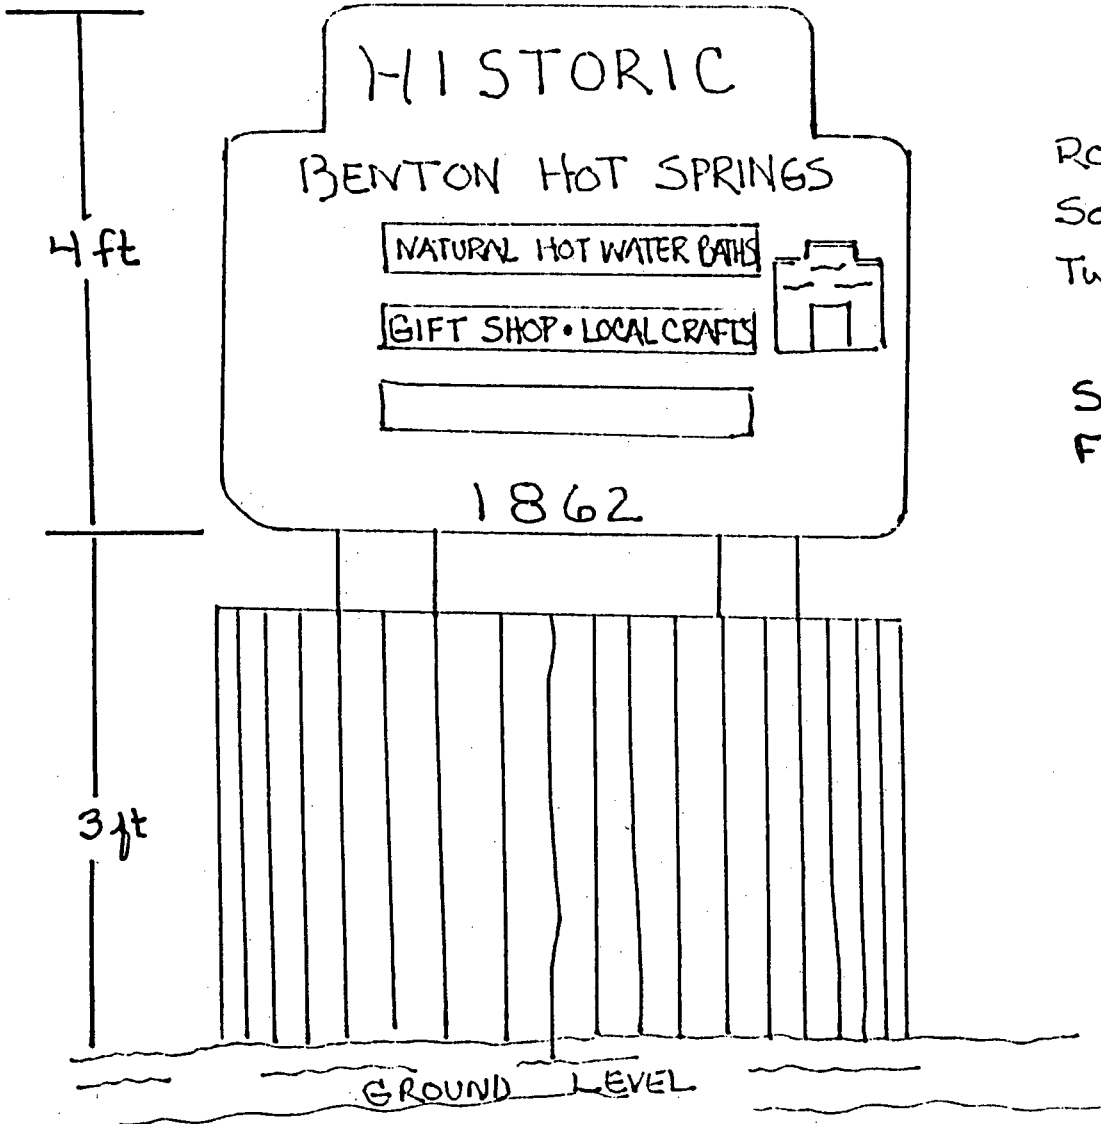 HISTORIC
BENTON HOT SPRINGS
NATURAL HOT WATER BATHS
GIFT SHOP • LOCAL CRAFTS
1862
4 ft
3 ft
GROUND LEVEL